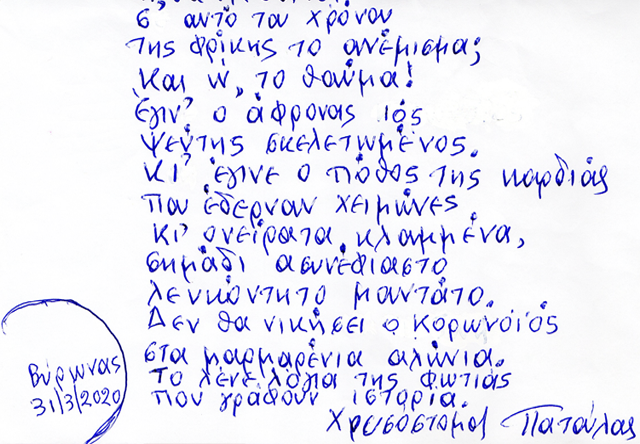 σ' αυτό τον χρόνον
της φρίκης το ανέμισμα;
Και ω, το θαύμα!
Έγιν' ο άφρονας ιός
ψεύτης σκελετωμένος.
κι' έγινε ο πόθος της καρδιάς
που έδερναν χειμώνες
κι' ονείρατα κλαμμένα,
σημάδι ασυνέφιαστο
λευκόντητο μαντάτο.
Δεν θα νικήσει ο Κορωνοϊός
στα μαρμαρένια αλώνια.
Το λένε λόγια της φωτιάς
που γράφουν ιστορία.
Χρυσόστομος Πατούλας
Βύρωνας
31/3/2020